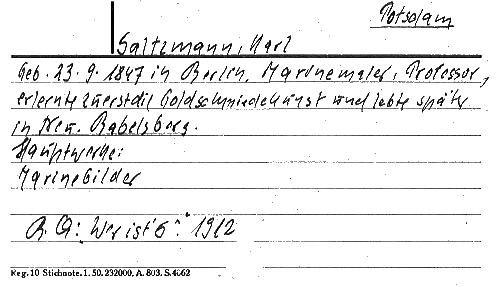 Potsdam
Saltzmann, Karl
Geb. 23. 9. 1847 in Berlin, Marinemaler, Professor,
erlernte zuerst die Goldschmiedekunst und lebte später
in Neu. Babelsberg.
Hauptwerke:
Marinebilder
R. Q: Wer ist's? 1912
Reg. 10 Stichnote. 1. 50. 232000. A. 803. S. 4662